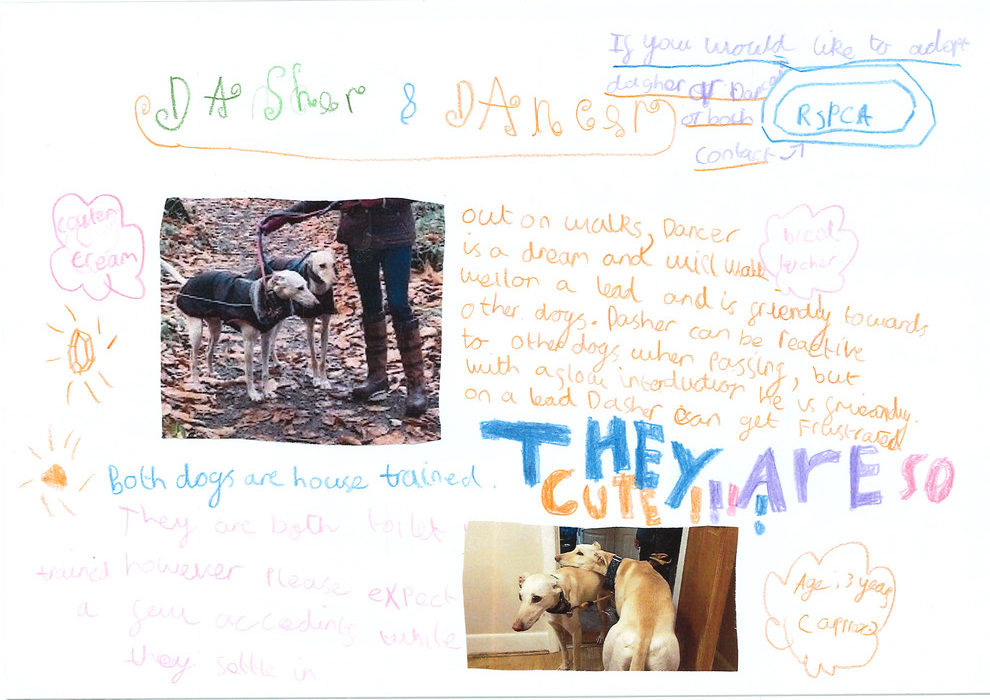 DASher & DANcer
If you would like to adopt
dagher or Dancer
or both
Contact
RSPCA
couler
cream
out on walks, Dancer
is a dream and will walk
well on a lead and is griendly towards
other dogs. Dasher can be reactive
to other dogs when passing, but
with a slow introduction he is grieandly.
on a lead Dasher can get Frustrated
breed
lurcher
THEY ARE SO
CUTE !!!!!
Both dogs are house trained.
They are both toilet
trained however please expect
a few accedints while
they settle in
Age: 3 years
(approx)